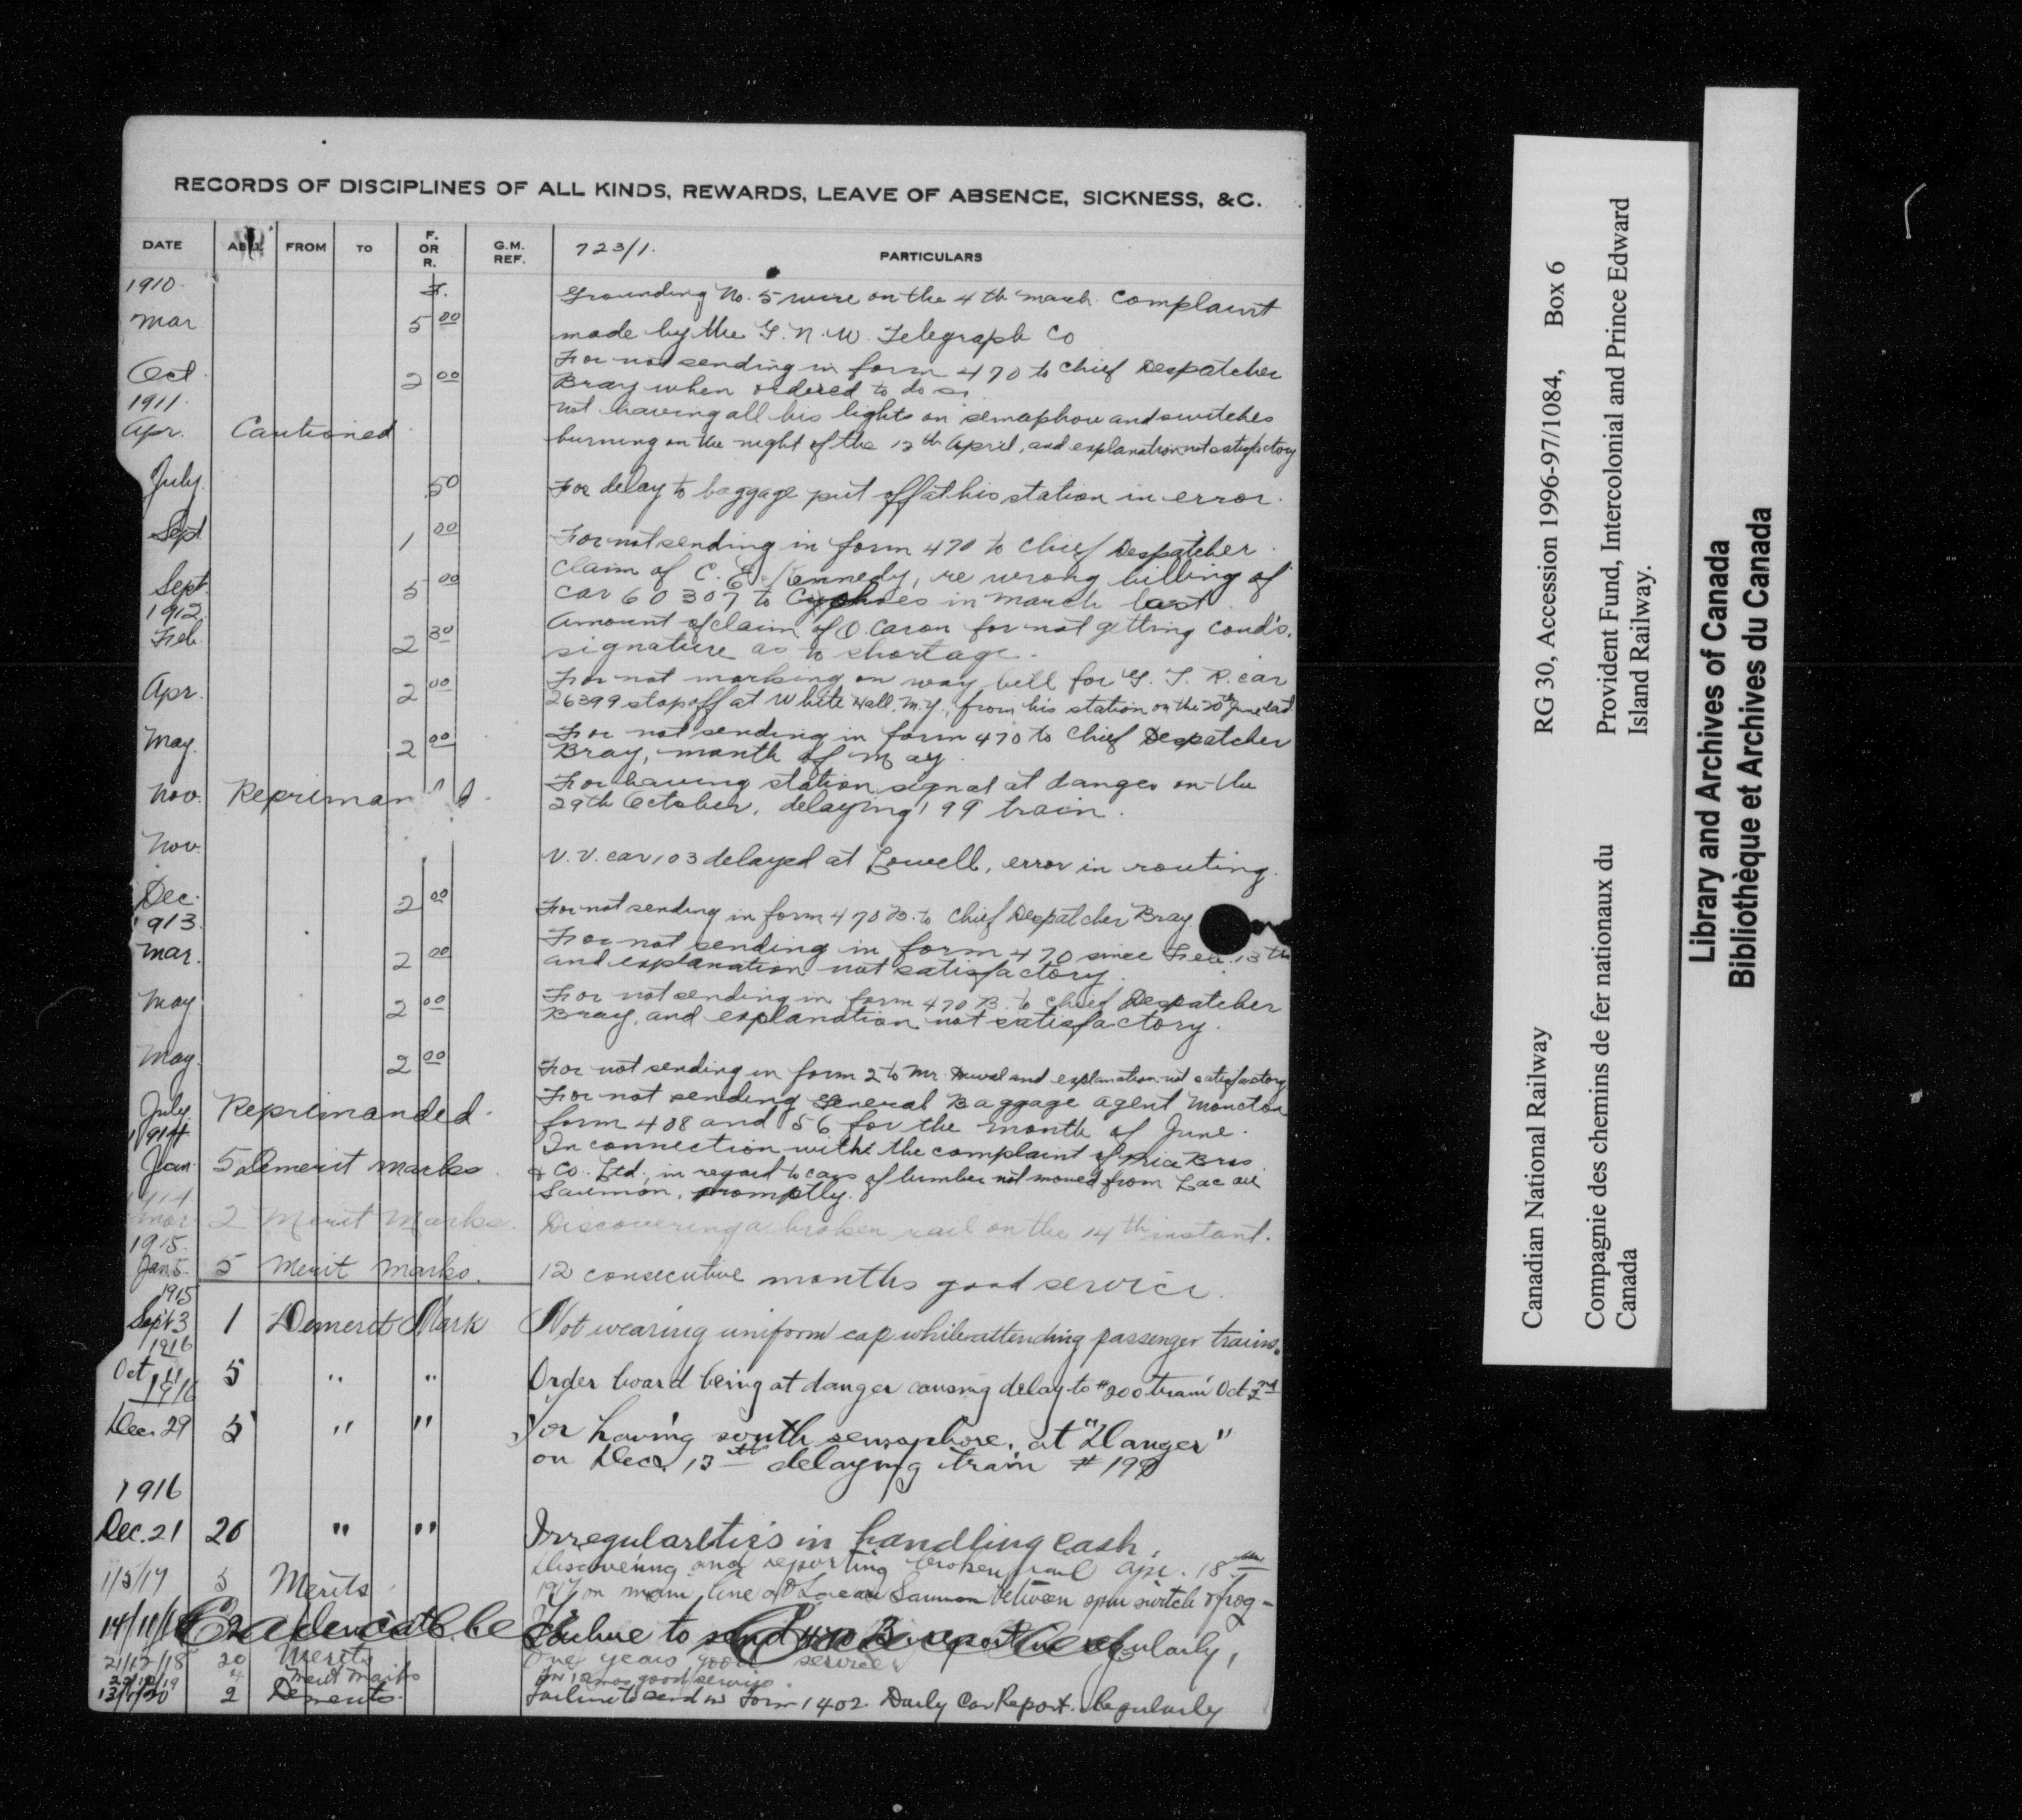 RECORDS OF DISCIPLINES OF ALL KINDS, REWARDS, LEAVE OF ABSENCE, SICKNESS, &C.
DATE FROM TO F. OR R. G.M. REF. 723/1. PARTICULARS
1910. F. Grounding No. 5 wire on the 4th March. Complaint
Mar 5 00 made by the G. N. W. Telegraph Co
For not sending in form 470 to Chief Despatcher
Oct. 2 00 Bray when ordered to do so.
1911. Not having all his lights on semaphore and switches
Apr. Cautioned burning on the night of the 12th April, and explanation not satisfactory
July. 50 For delay to baggage put off at his station in error.
Sept 1 00 For not sending in form 470 to Chief Despatcher.
Claim of C. E. Kennedy, re wrong billing of
Sept. 5 00 car 60307 to in March last.
1912 Amount of claim of O. Caron for not getting cond's.
Feb. 2 30 signature as to shortage.
For not marking on way bill for G. T. R. car
Apr. 2 00 26399 stop off at White Hall, N.Y., from his station on the 20th June last.
For not sending in form 470 to Chief Despatcher
May. 2 00 Bray, month of May.
For having station signal at danger on the
Nov. Reprimand 29th October, delaying 199 train.
Nov. V.V. car 103 delayed at Lowell, error in routing.
Dec. 2 00 For not sending in form 470 B. to Chief Despatcher Bray.
1913. For not sending in form 470 since Feb. 13th
Mar. 2 00 and explanation not satisfactory.
For not sending in form 470 B. to Chief Despatcher
May. 2 00 Bray, and explanation not satisfactory.
May. 2 00 For not sending in form 2 to Mr. Duval and explanation not satisfactory
For not sending General Baggage Agent Moncton
July. Reprimanded. form 408 and 56 for the month of June.
1914 In connection with the complaint of Price Bros.
Jan. 5 Demerit Marks. & Co. Ltd., in regard to cars of lumber not moved from Lac au
Saumon, promptly.
1914
Mar 2 Merit Marks. Discovering a broken rail on the 14th instant.
1915.
Jan 5. 5 Merit Marks. 12 consecutive months good service.
1915
Sept 3 1 Demerit Mark Not wearing uniform cap while attending passenger trains.
1916
Oct 11 5 " " Order board being at danger causing delay to #200 train Oct 2nd
1916
Dec. 29 5 " " For having south semaphore, at "Danger"
on Dec. 13th delaying train #199
1916
Dec. 21 20 " " Irregularities in handling cash.
Discovering and reporting broken rail Apr. 18th
1/5/17 5 Merits 1917 on main line at Lac au Saumon between spur switch & frog -
14/11/ 2 Failure to send 470 B. report in regularly,
21/12/18 20 Merits One years good service
4 Merit Marks For 12 mos good service.
2 Demerits. Failure to send in Form 1402. Daily Car Report. Regularly
Canadian National Railway RG 30, Accession 1996-97/1084, Box 6
Compagnie des chemins de fer nationaux du Provident Fund, Intercolonial and Prince Edward
Canada Island Railway.
Library and Archives of Canada
Bibliothèque et Archives du Canada